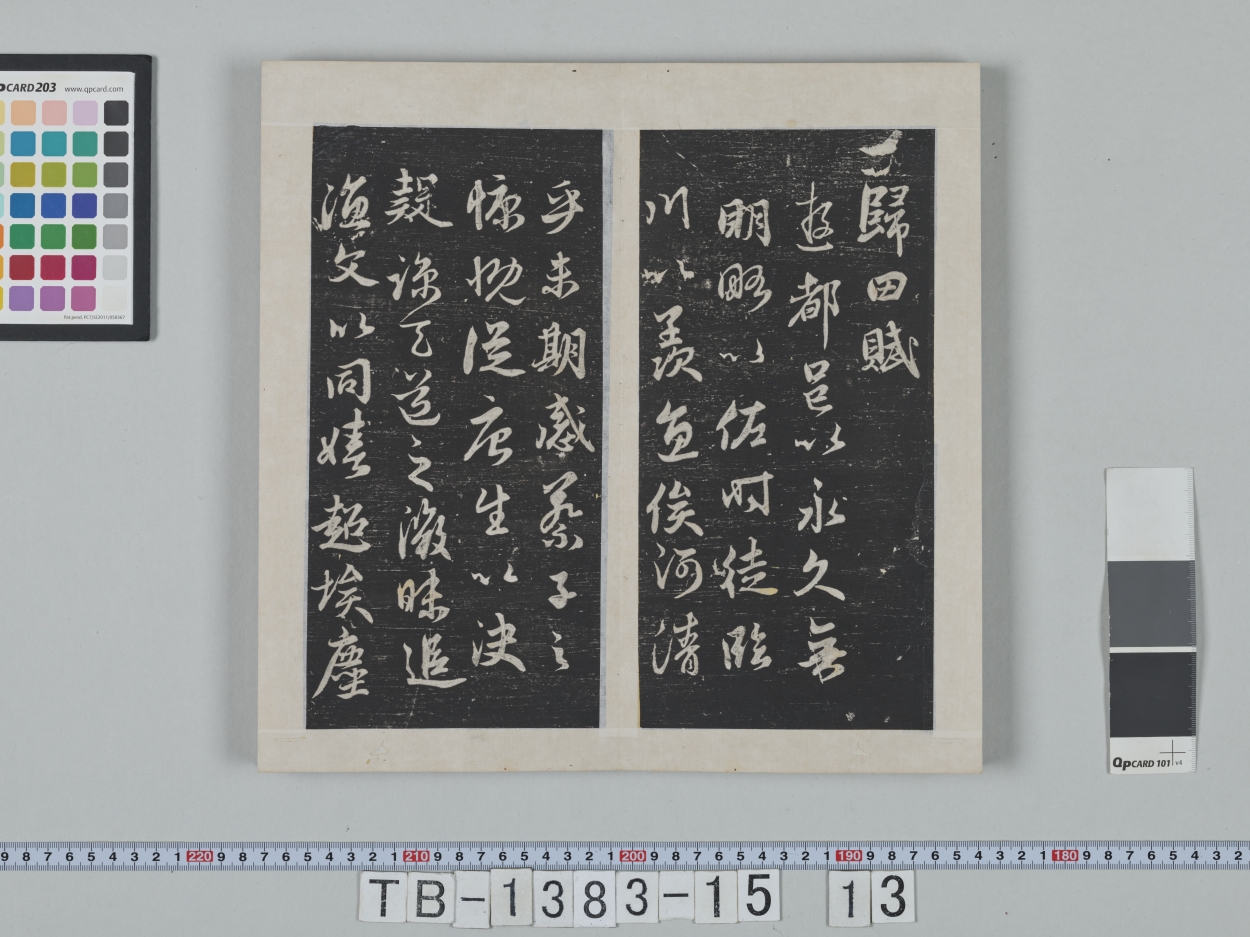 歸田賦
遊都邑以永久無
明略以佐時徒臨
川以羨魚俟河清
乎未期感蔡子之
慷慨從唐生以決
疑諒天道之微昧追
漁父以同嬉超埃塵
pCARD 203 www.qpcard.com
QpCARD 101 v4
9 8 7 6 5 4 3 2 1 220 9 8 7 6 5 4 3 2 1 210 9 8 7 6 5 4 3 2 1 200 9 8 7 6 5 4 3 2 1 190 9 8 7 6 5 4 3 2 1 180 9 8 7 6 5 4 3 2
TB-1383-15 13